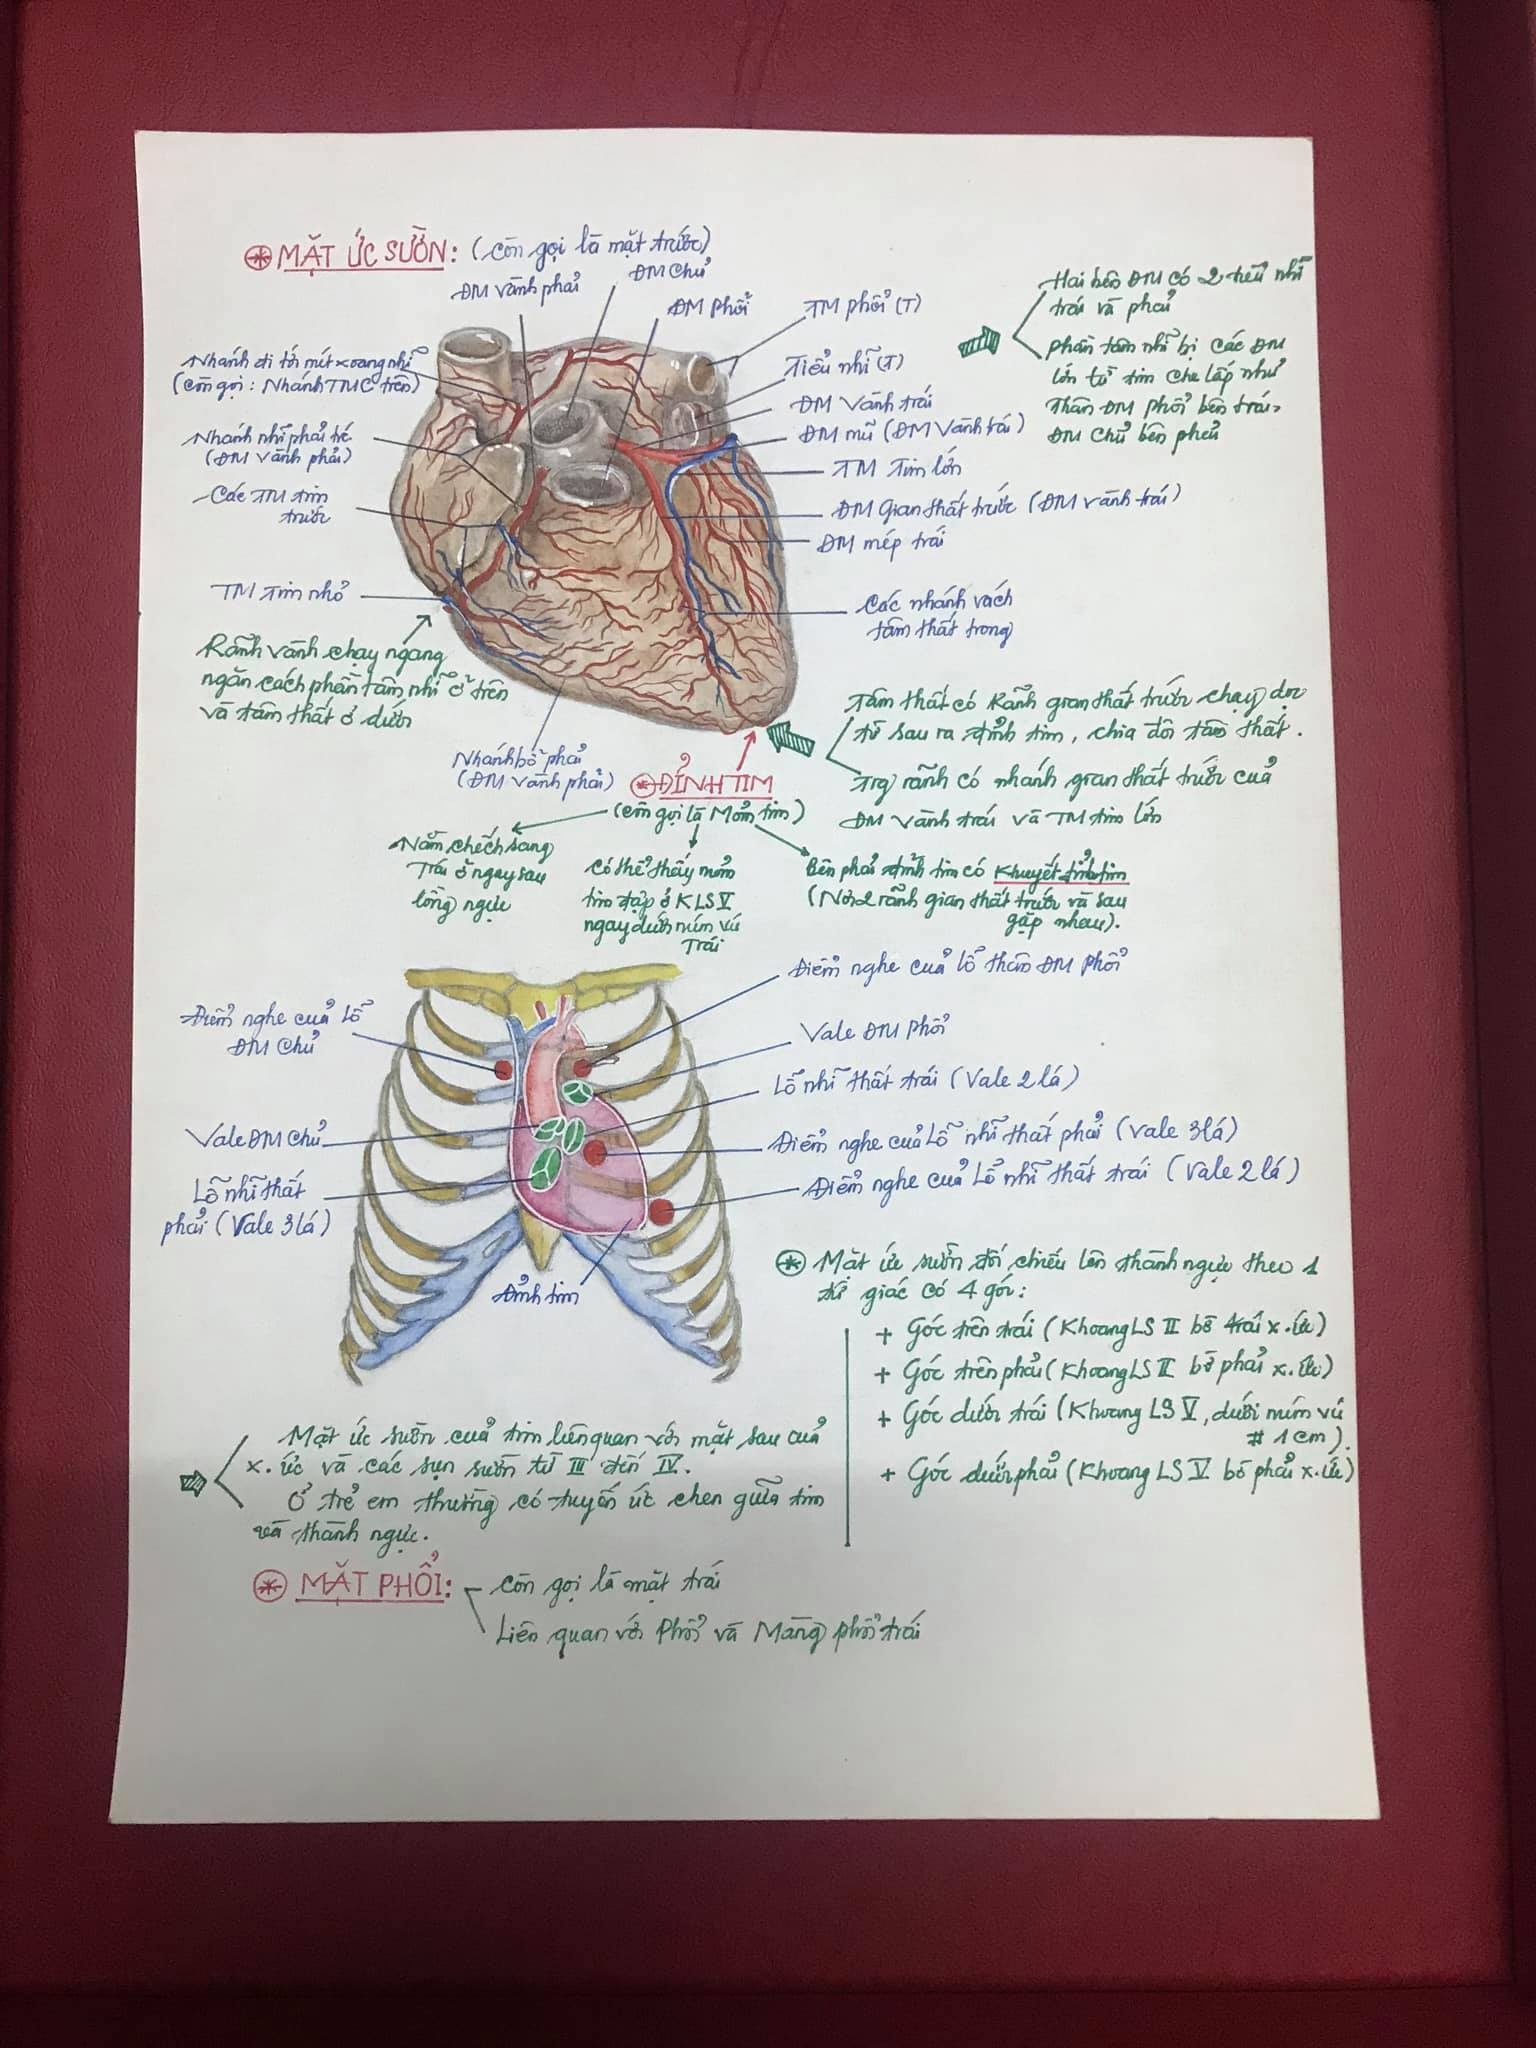 MẶT ỨC SƯỜN: (còn gọi là mặt trước)
ĐM vành phải
ĐM Chủ
ĐM Phổi
TM phổi (T)
Tiểu nhĩ (T)
ĐM Vành trái
ĐM mũ (ĐM Vành trái)
TM Tim lớn
ĐM Gian thất trước (ĐM vành trái)
ĐM mép trái
Các nhánh vách
tâm thất trong
Hai bên ĐM có 2 tiểu nhĩ
trái và phải
Phần tâm nhĩ bị các ĐM
lớn từ tim che lấp như
Thân ĐM phổi bên trái,
ĐM Chủ bên phải
Nhánh đi tới nút xoang nhĩ
(Còn gọi: Nhánh TMC trên)
Nhánh nhĩ phải
(ĐM vành phải)
Các TM tim
trước
TM tim nhỏ
Rãnh vành chạy ngang
ngăn cách phần tâm nhĩ ở trên
và tâm thất ở dưới
Nhánh bờ phải
(ĐM vành phải)
Tâm thất có Rãnh gian thất trước chạy dọc
từ sau ra đỉnh tim, chia đôi tâm thất.
Trg rãnh có nhánh gian thất trước của
ĐM vành trái và TM tim lớn
ĐỈNH TIM
(còn gọi là Mỏm tim)
Nằm chếch sang
Trái ở ngay sau
lồng ngực
Có thể thấy mỏm
tim đập ở KLS V
ngay dưới núm vú
Trái
Bên phải đỉnh tim có Khuyết đỉnh tim
(Nơi 2 rãnh gian thất trước và sau
gặp nhau).
Điểm nghe của lỗ thân ĐM phổi
Điểm nghe của Lỗ
ĐM Chủ
Vale ĐM Phổi
Lỗ nhĩ thất trái (Vale 2 lá)
Vale ĐM Chủ
Điểm nghe của Lỗ nhĩ thất phải (Vale 3 lá)
Điểm nghe của Lỗ nhĩ thất trái (Vale 2 lá)
Lỗ nhĩ thất
phải (Vale 3 lá)
Đỉnh tim
Mặt ức sườn đối chiếu lên thành ngực theo 1
tứ giác có 4 góc:
+ Góc trên trái (Khoang LS II bờ trái x. ức)
+ Góc trên phải (Khoang LS II bờ phải x. ức)
+ Góc dưới trái (Khoang LS V, dưới núm vú
# 1 cm).
+ Góc dưới phải (Khoang LS V bờ phải x. ức)
Mặt ức sườn của tim liên quan với mặt sau của
x. ức và các sụn sườn từ III đến IV.
Ở trẻ em thường có tuyến ức chen giữa tim
và thành ngực.
MẶT PHỔI:
Còn gọi là mặt trái
Liên quan với Phổi và Màng phổi trái